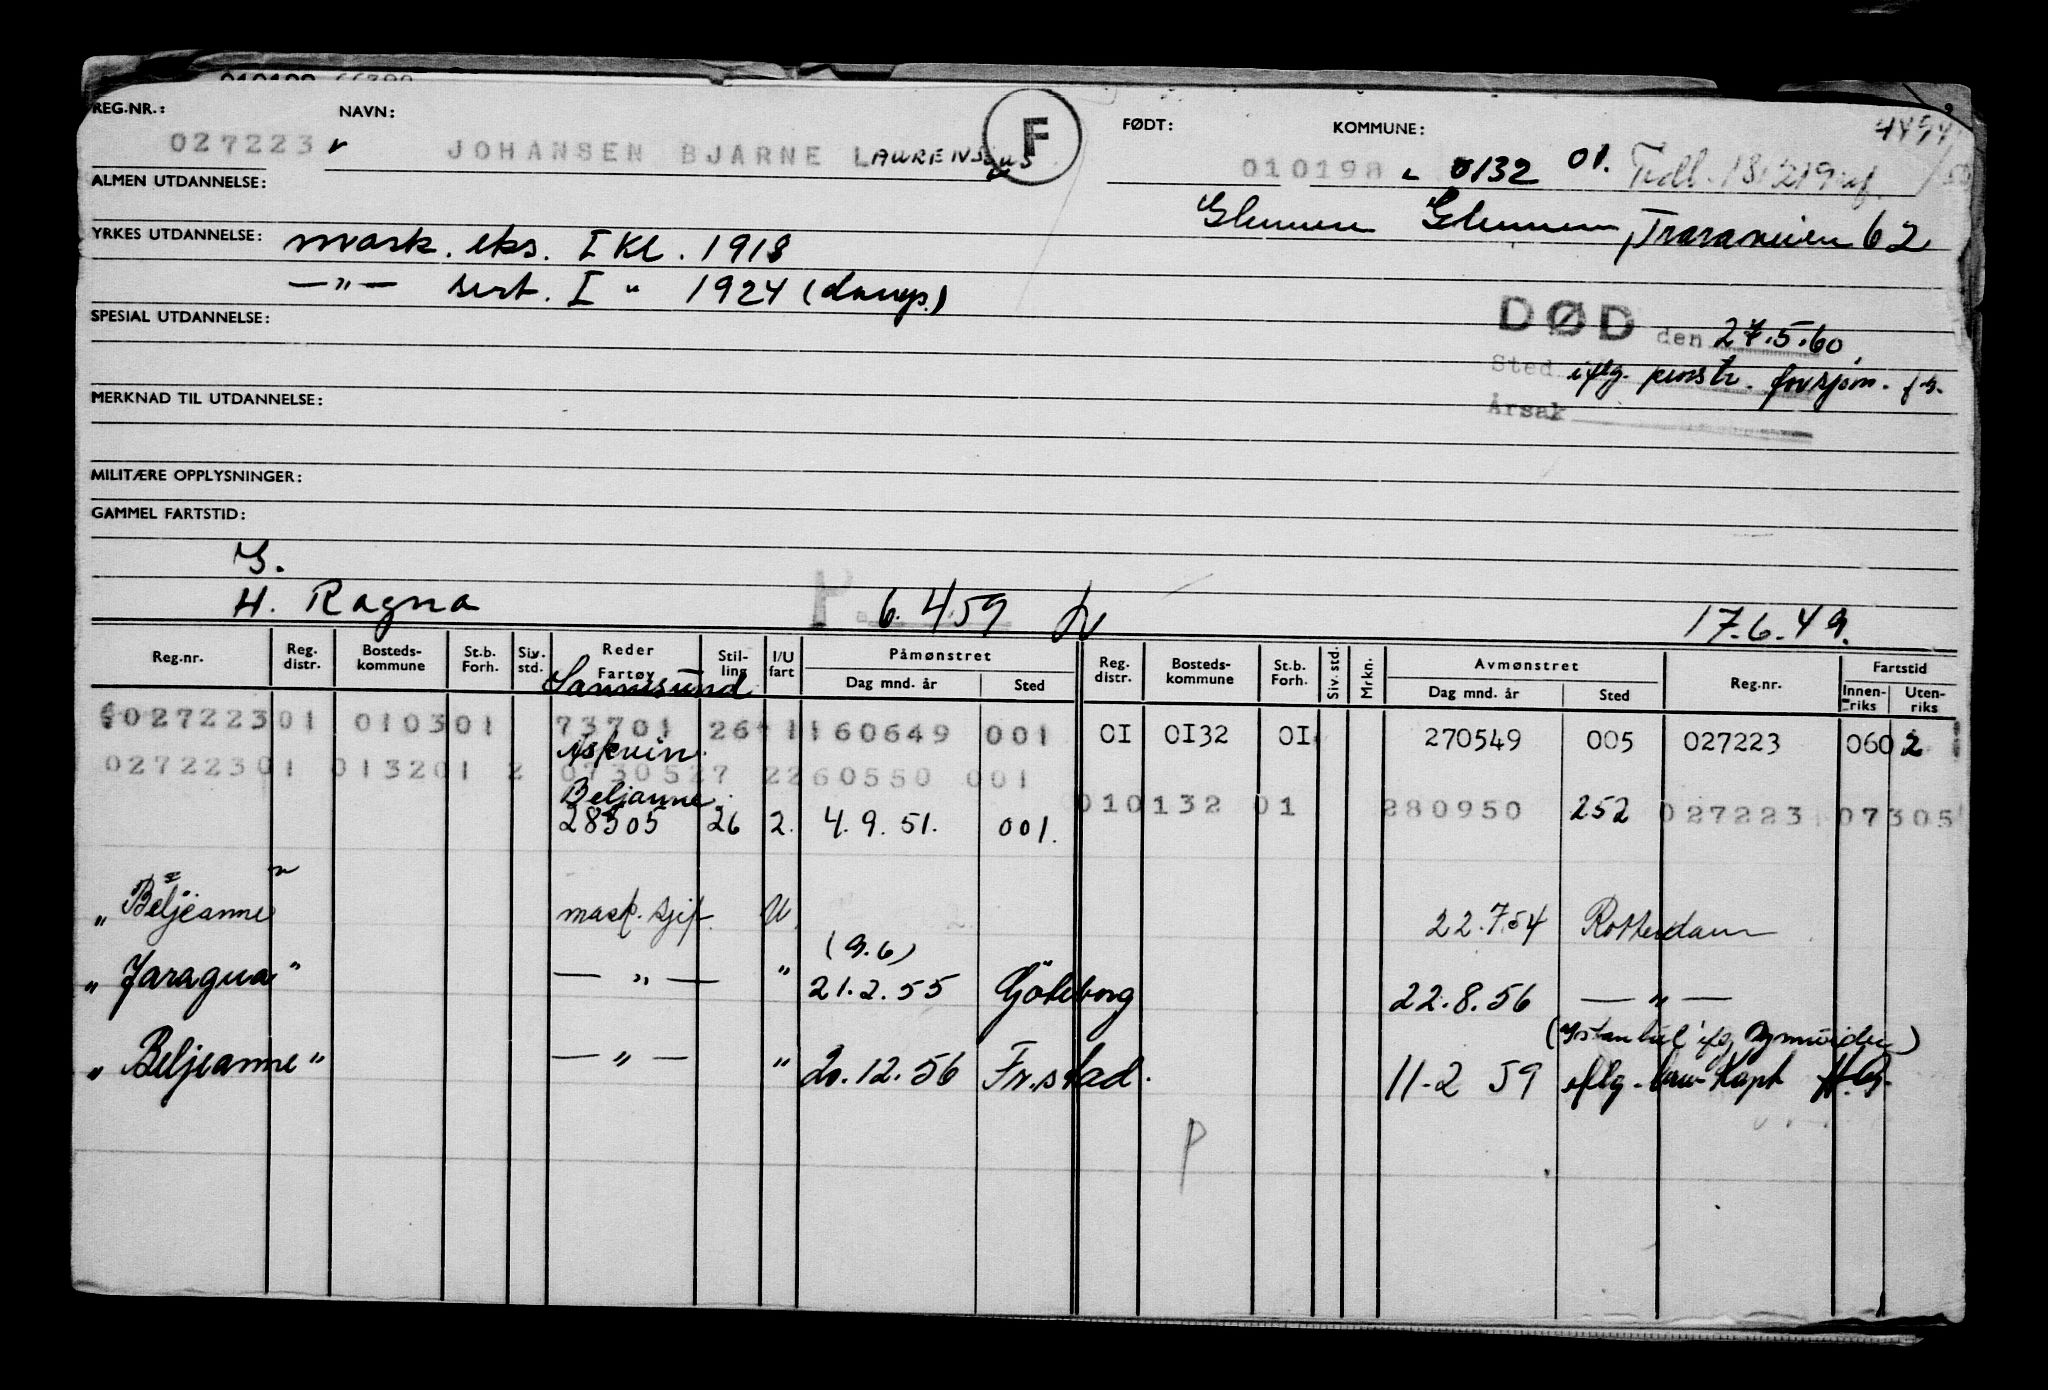 REG.NR.: NAVN: FØDT: KOMMUNE:
027223 JOHANSEN BJARNE LAURENSIUS F 010198 0132 01.
ALMEN UTDANNELSE:
Glemmen Glemmen, Traraveien 62
YRKES UTDANNELSE: mask. eks. I Kl. 1918
—"— sert. I " 1924 (damp.)
SPESIAL UTDANNELSE:
DØD den 27.5.60.
Sted iflg. penstr. forsjøm. f.s.
MERKNAD TIL UTDANNELSE: Årsak
MILITÆRE OPPLYSNINGER:
GAMMEL FARTSTID:
G.
H. Ragna P. 6.4.59 17.6.49.
Reg.nr. Reg. distr. Bosteds-kommune St.b. Forh. Siv. std. Reder Fartøy Stil-ling I/U fart Påmønstret Dag mnd. år Sted Reg. distr. Bosteds-kommune St.b. Forh. Siv. std. Mrkn. Avmønstret Dag mnd. år Sted Reg.nr. Fartstid Innen-riks Uten-riks
Sannesund
02722301 010301 73701 26 1 160649 001 01 0132 01 270549 005 027223 060 2
Askvin.
02722301 013201 2 0730527 2260550 001
Beljeanne.
010132 01 280950 252 027223 07305
28505 26 2. 4.9.51. 001.
"Beljeanne" mask.sjef. U. 22.7.54 Rotterdam
(9.6)
"Jaragua" —"— " 21.2.55 Göteborg 22.8.56 —"—
(Istanbul ifg. Ymuiden)
"Beljeanne" —"— " 20.12.56 Fr.stad. 11-2 59 iflg.
P